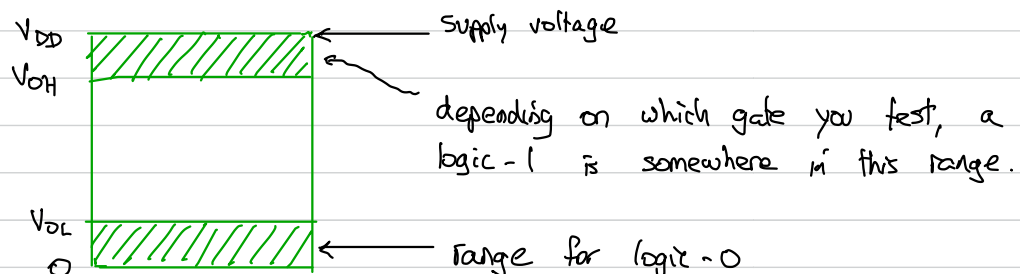 VDD
Supply voltage
VOH
depending on which gate you test, a
logic-1 is somewhere in this range.
VOL
range for logic-0
0